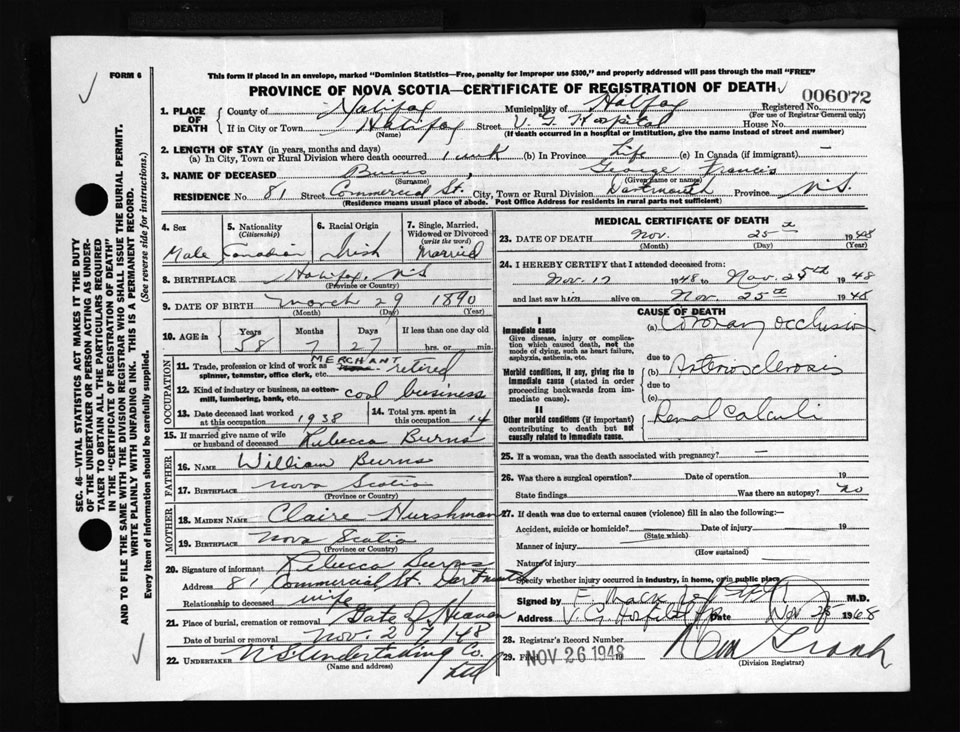 FORM 6
This form if placed in an envelope, marked "Dominion Statistics—Free, penalty for improper use $300," and properly addressed will pass through the mail "FREE"
PROVINCE OF NOVA SCOTIA—CERTIFICATE OF REGISTRATION OF DEATH
006072
1. PLACE OF DEATH
County of Halifax Municipality of Halifax Registered No.
(For use of Registrar General only)
If in City or Town Halifax Street V. G. Hospital House No.
(Name) (If death occurred in a hospital or institution, give the name instead of street and number)
2. LENGTH OF STAY (in years, months and days)
(a) In City, Town or Rural Division where death occurred 1 wk (b) In Province Life (c) In Canada (if immigrant) —
3. NAME OF DECEASED Burns, George Francis
(Surname) (Given name or names)
RESIDENCE No. 81 Street Commercial St. City, Town or Rural Division Dartmouth Province N.S.
(Residence means usual place of abode. Post Office Address for residents in rural parts not sufficient)
4. Sex
Male
5. Nationality
(Citizenship)
Canadian
6. Racial Origin
Irish
7. Single, Married, Widowed or Divorced
(write the word)
Married
8. BIRTHPLACE Halifax, N.S
(Province or Country)
9. DATE OF BIRTH March 29 1890
(Month) (Day) (Year)
10. AGE in
Years Months Days If less than one day old
58 7 27 hrs. or min.
OCCUPATION
11. Trade, profession or kind of work as spinner, teamster, office clerk, etc. MERCHANT retired
12. Kind of industry or business, as cotton-mill, lumbering, bank, etc. coal business
13. Date deceased last worked at this occupation 1938
14. Total yrs. spent in this occupation 14
15. If married give name of wife or husband of deceased Rebecca Burns
FATHER
16. NAME William Burns
17. BIRTHPLACE Nova Scotia
(Province or Country)
MOTHER
18. MAIDEN NAME Claire Hurshman
19. BIRTHPLACE Nova Scotia
(Province or Country)
20. Signature of informant Rebecca Burns
Address 81 Commercial St. Dartmouth
Relationship to deceased wife
21. Place of burial, cremation or removal Gate of Heaven
Date of burial or removal Nov. 27/48
22. UNDERTAKER N S Undertaking Co. Ltd
(Name and address)
MEDICAL CERTIFICATE OF DEATH
23. DATE OF DEATH Nov. 25th 1948
(Month) (Day) (Year)
24. I HEREBY CERTIFY that I attended deceased from:
Nov. 17 1948 to Nov. 25th 1948
and last saw him alive on Nov. 25th 1948
CAUSE OF DEATH
I
Immediate cause
Give disease, injury or complication which caused death, not the mode of dying, such as heart failure, asphyxia, asthenia, etc.
(a) Coronary occlusion
due to
Morbid conditions, if any, giving rise to immediate cause (stated in order proceeding backwards from immediate cause).
(b) Arteriosclerosis
due to
(c)
II
Other morbid conditions (if important) contributing to death but not causally related to immediate cause.
Renal Calculi
25. If a woman, was the death associated with pregnancy? —
26. Was there a surgical operation? Date of operation 19
State findings Was there an autopsy? no
27. If death was due to external causes (violence) fill in also the following:—
Accident, suicide or homicide? Date of injury 19
(State which)
Manner of injury
(How sustained)
Nature of injury
Specify whether injury occurred in industry, in home, or in public place
Signed by M.D.
V. G. Hospital Date Nov 26 1968
28. Registrar's Record Number
29. NOV 26 1948 19
(Division Registrar)
SEC. 46—VITAL STATISTICS ACT MAKES IT THE DUTY
OF THE UNDERTAKER OR PERSON ACTING AS UNDER-
TAKER TO OBTAIN ALL THE PARTICULARS REQUIRED
IN THE "CERTIFICATE OF REGISTRATION OF DEATH"
AND TO FILE THE SAME WITH THE DIVISION REGISTRAR WHO SHALL ISSUE THE BURIAL PERMIT.
WRITE PLAINLY WITH UNFADING INK. THIS IS A PERMANENT RECORD.
Every item of information should be carefully supplied. (See reverse side for instructions.)